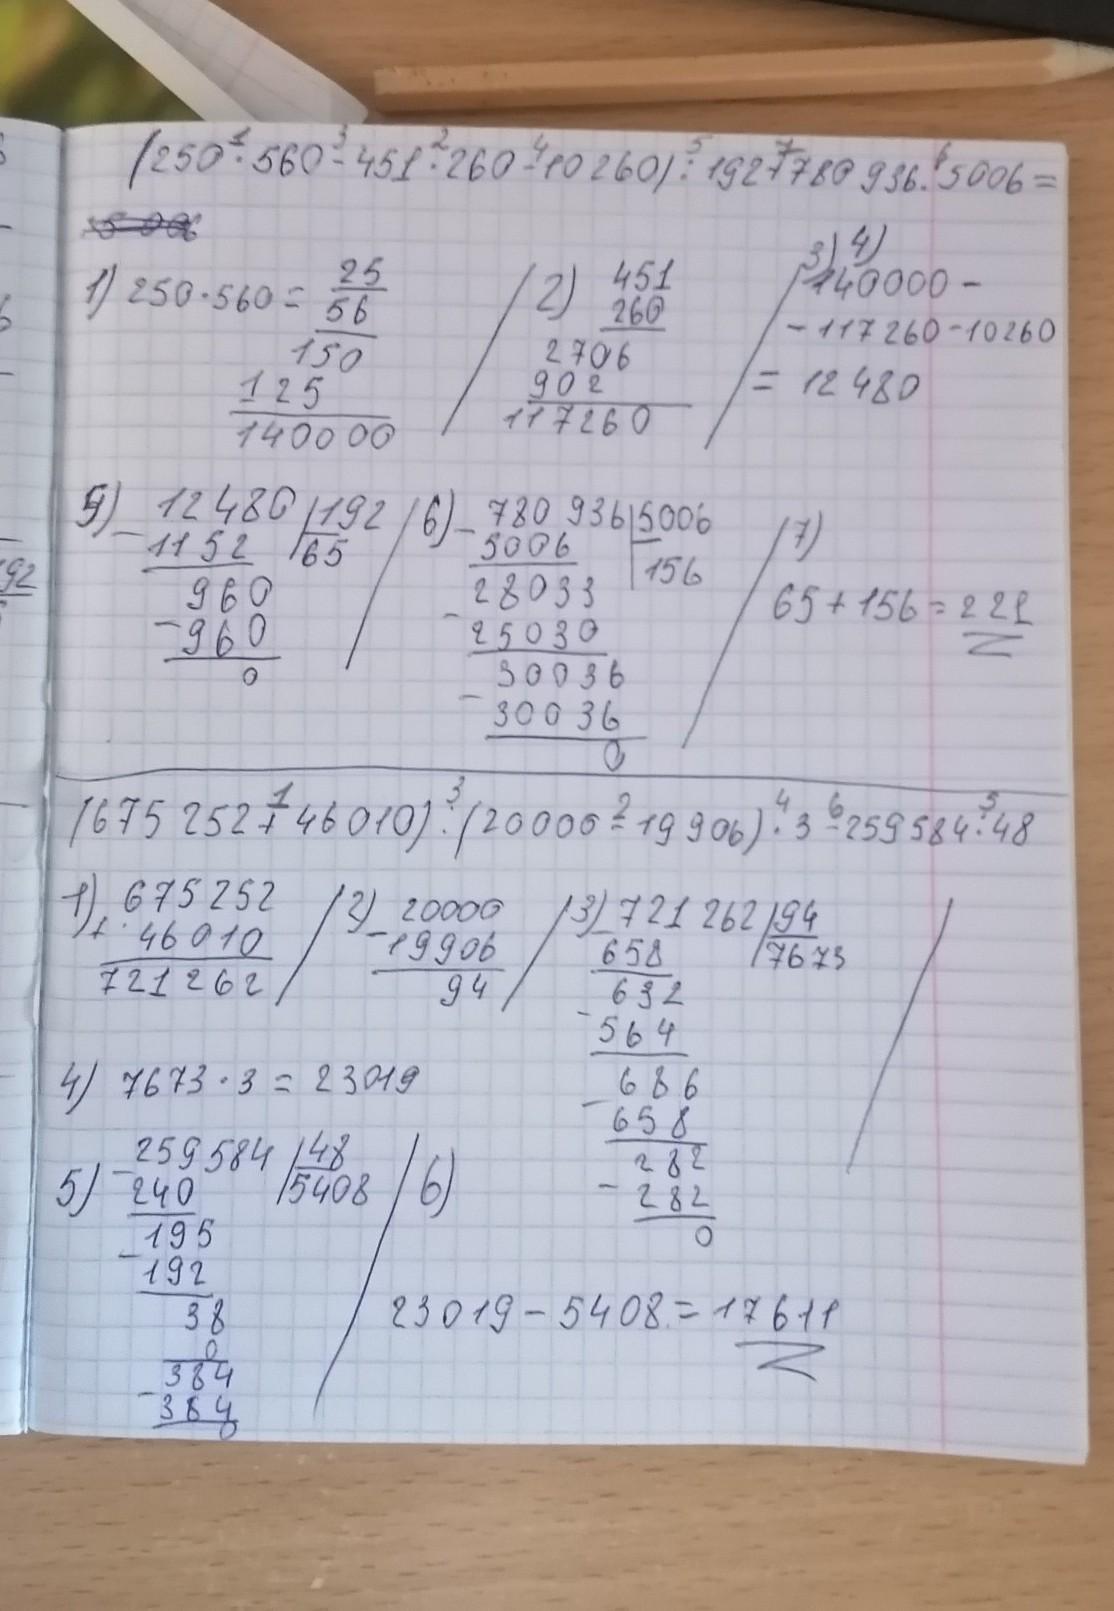 (250 · 560 - 451 · 260 - 10 260) : 192 + 780 936 : 5006 =
1) 250 · 560 = 25
56
150
125
140000
2) 451
260
2706
902
117260
3) 4)
140000 -
- 117260 - 10260
= 12480
5) - 12480 | 192
1152 | 65
960
- 960
0
6) - 780 936 | 5006
5006 | 156
28033
- 25030
30036
- 30036
0
7)
65 + 156 = 221
(675 252 + 46 010) : (20000 - 19 906) · 3 - 259 584 : 48
1) 675252
+ 46010
721262
2) 20000
- 19906
94
3) 721 262 | 94
- 658 | 7673
632
- 564
686
- 658
282
- 282
0
4) 7673 · 3 = 23019
5) - 259 584 | 48
240 | 5408
195
- 192
38
0
384
- 384
0
6)
23019 - 5408 = 17611